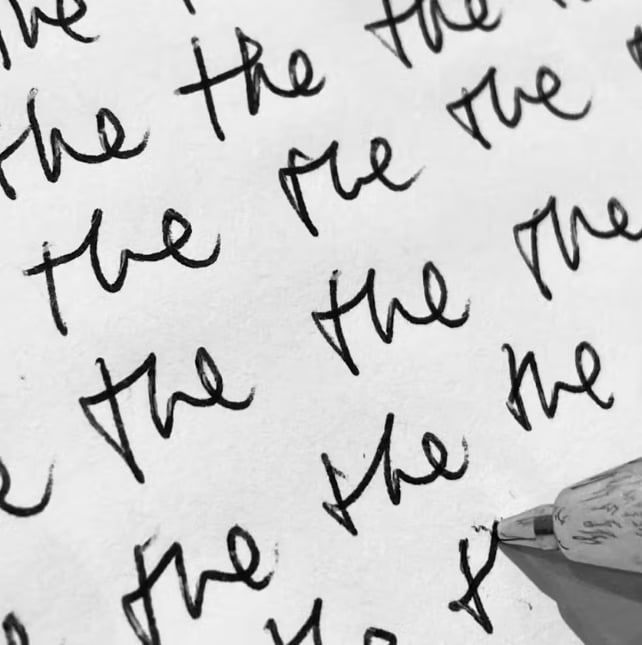 the
the the the
the the the
the the the
the the the
the t